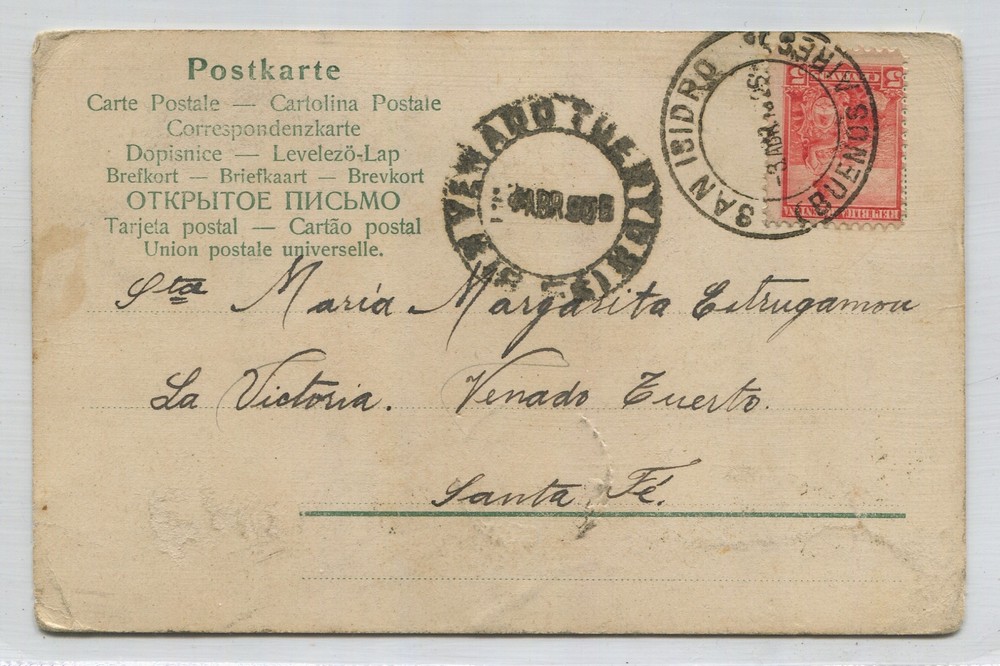 Postkarte
Carte Postale — Cartolina Postale
Correspondenzkarte
Dopisnice — Levelezö-Lap
Brefkort — Briefkaart — Brevkort
ОТКРЫТОЕ ПИСЬМО
Tarjeta postal — Cartão postal
Union postale universelle.
SAN ISIDRO
BUENOS AIRES
5
5
Sta María Margarita Estrugamou
La Victoria. Venado Tuerto.
Santa Fé.